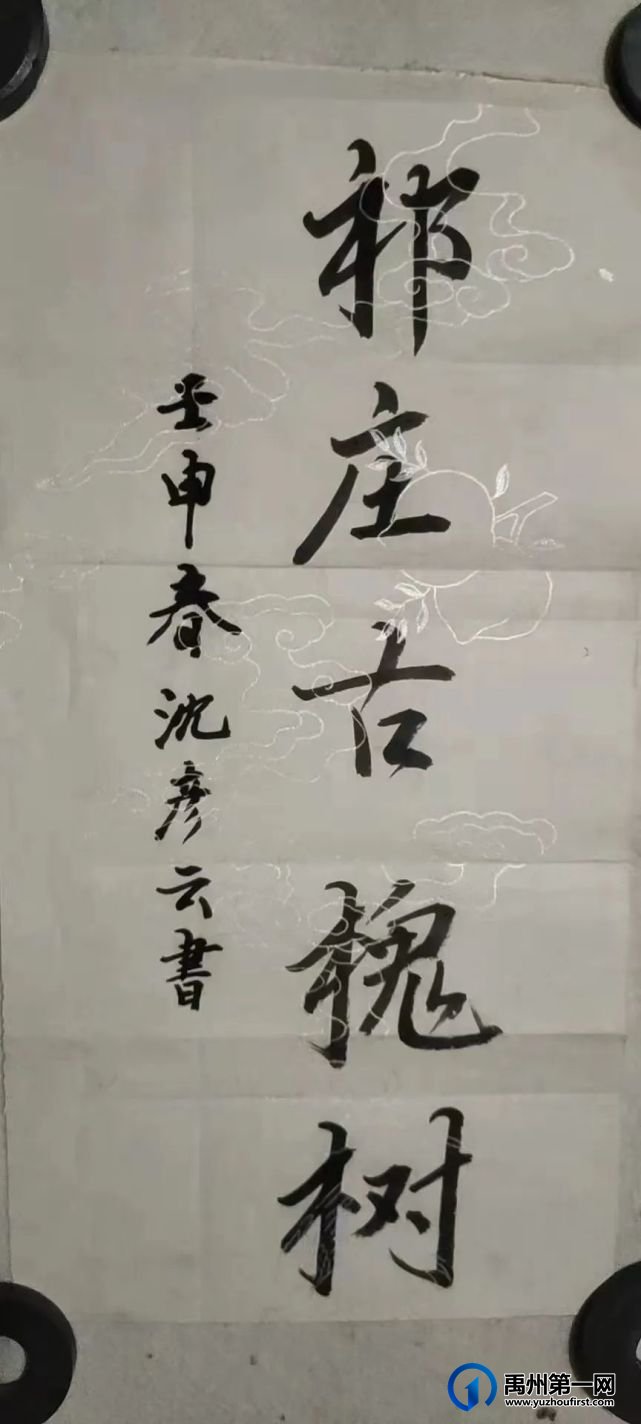 祁庄古槐树
壬申春沈彦云書
禹州第一网
www.yuzhoufirst.com